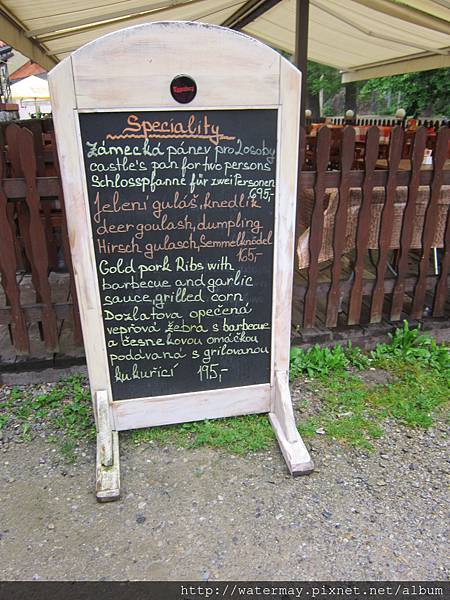 Eggenberg
Speciality
Zámecká pánev pro 2osoby
castle's pan for two persons
Schlosspfanne für zwei Personen
695,-
Jelení guláš, knedlík
deer goulash, dumpling
Hirsch gulasch, Semmelknödel
165,-
Gold pork Ribs with
barbecue and garlic
sauce, grilled corn
Dozlatova opečená
vepřová žebra s barbecue
a česnekovou omáčkou
podávaná s grilovanou
kukuřicí 195,-
http://watermay.pixnet.net/album